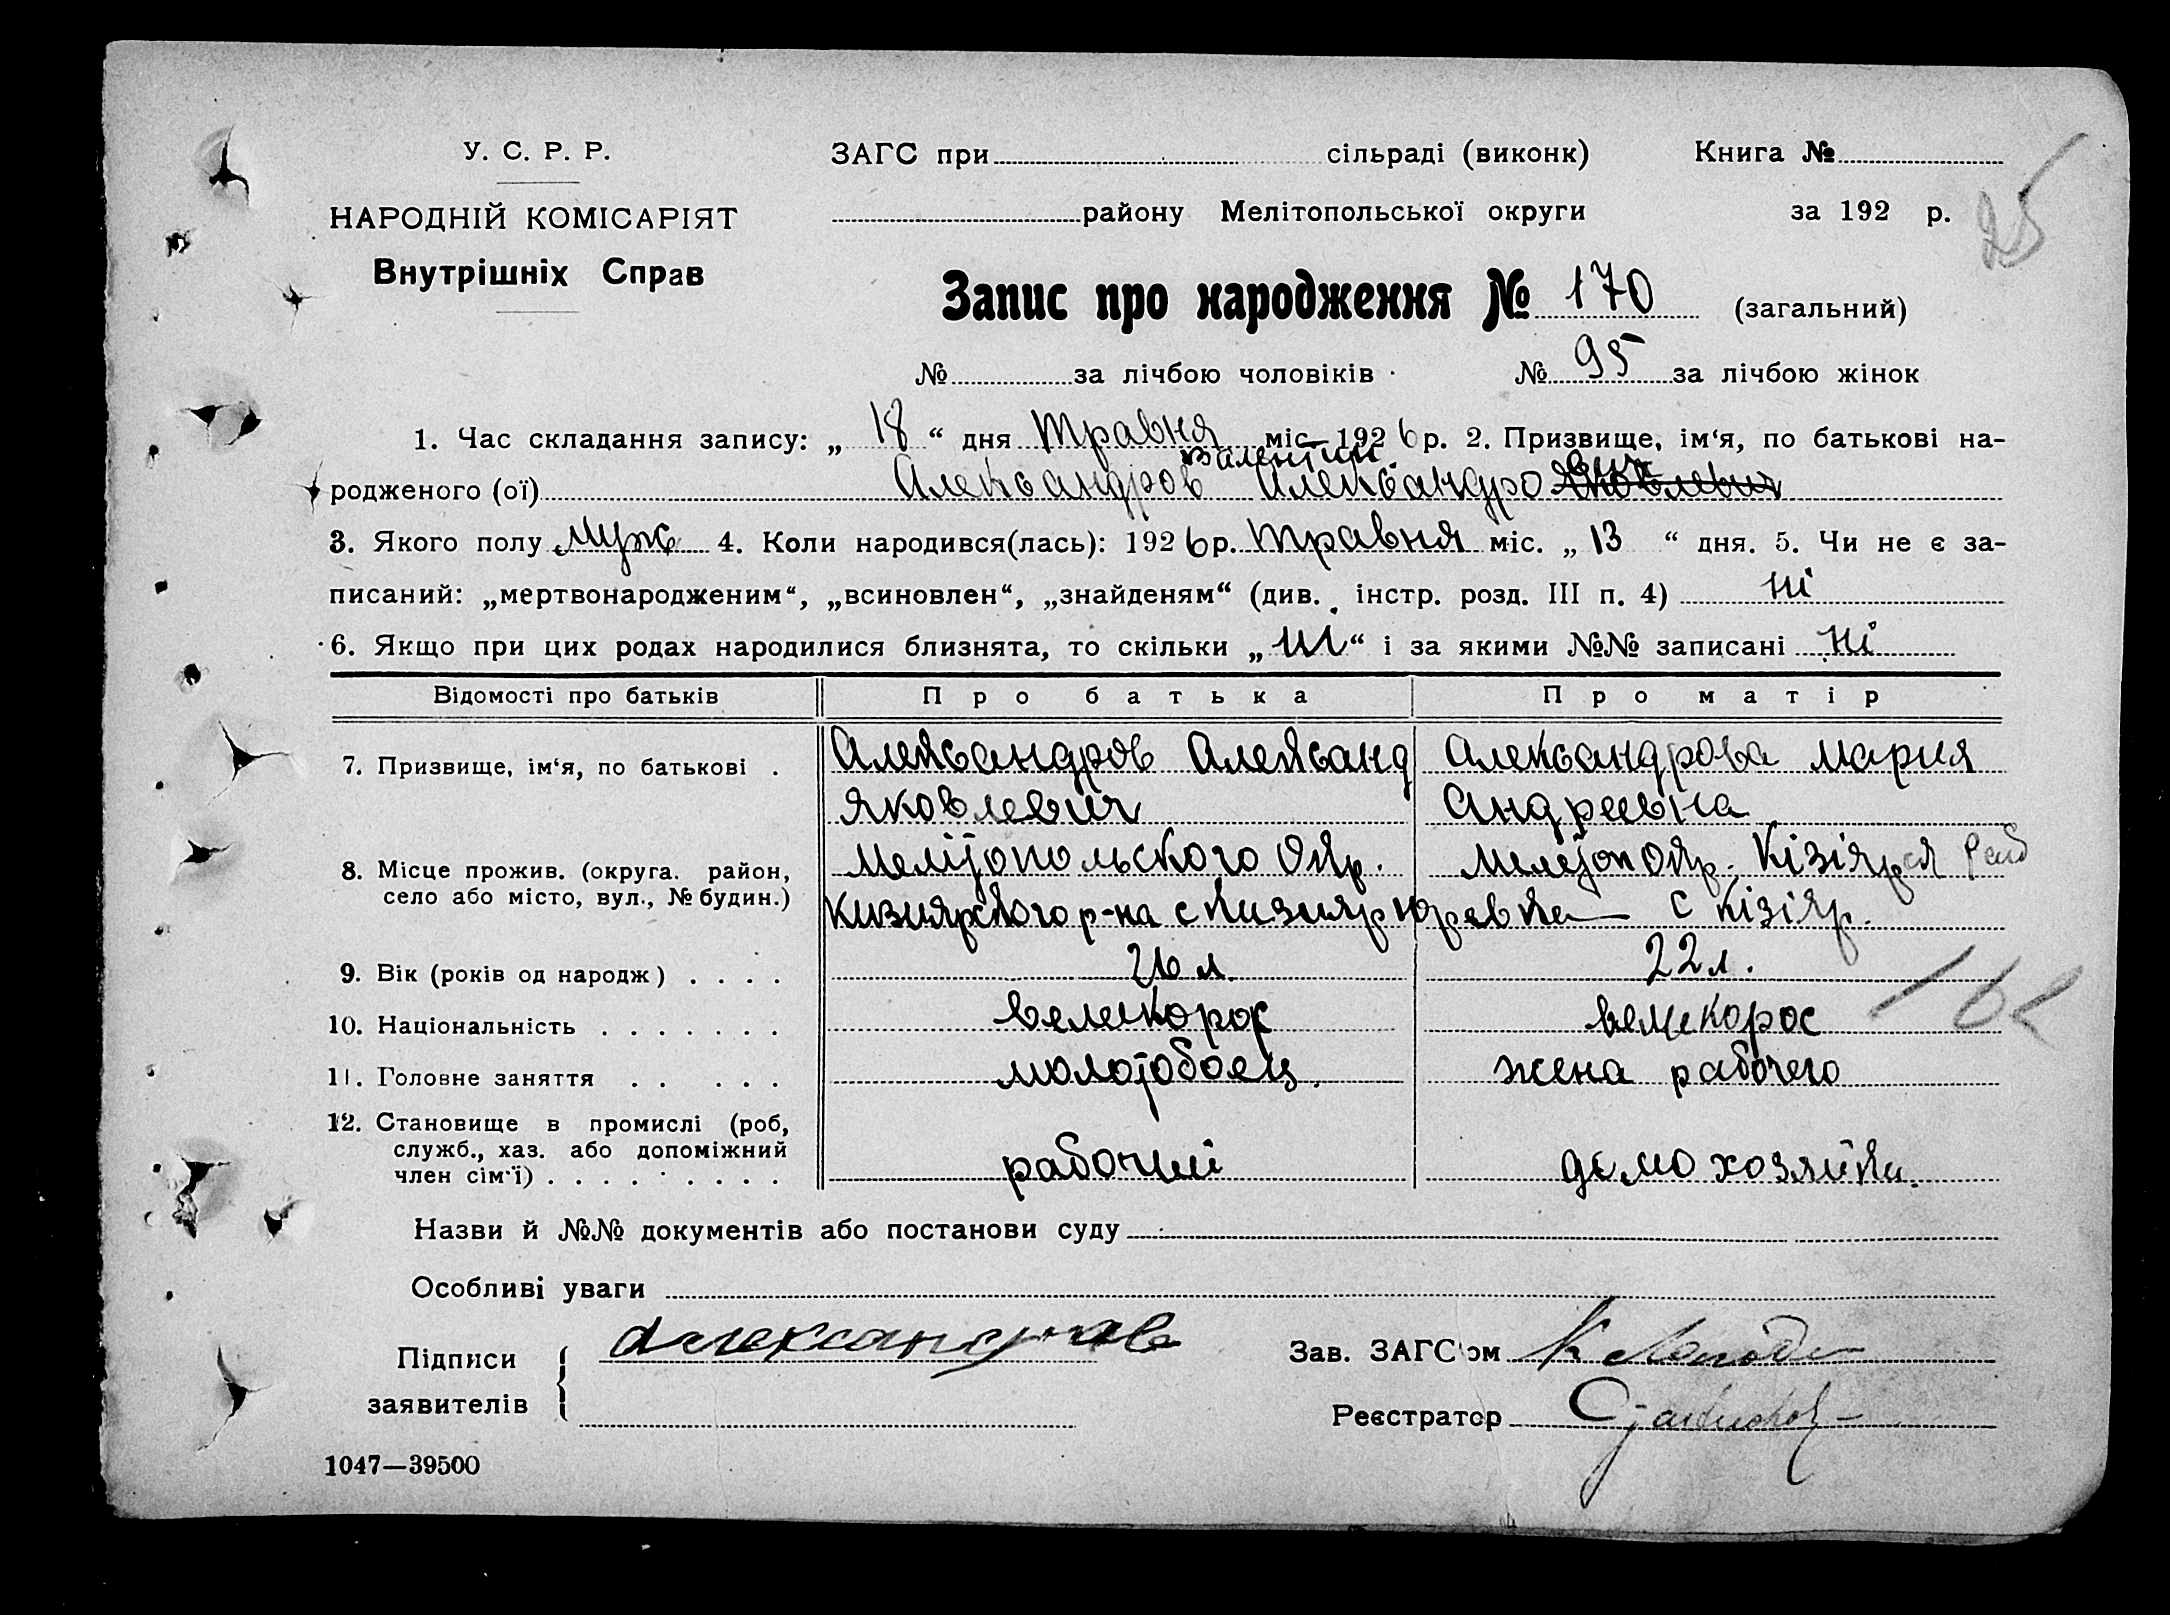 У. С. Р. Р.
НАРОДНІЙ КОМІСАРІЯТ
Внутрішніх Справ
ЗАГС при сільраді (виконк) Книга №
району Мелітопольської округи за 192 р.
25
Запис про народження № 170 (загальний)
№ за лічбою чоловіків № 95 за лічбою жінок
1. Час складання запису: „ 18 “ дня травня міс. 1926 р. 2. Призвище, ім‘я, по батькові на-
Валентин
родженого (ої) Александров Александрович
3. Якого полу муж 4. Коли народився(лась): 1926 р. травня міс. „ 13 “ дня. 5. Чи не є за-
писаний: „мертвонародженим“, „всиновлен“, „знайденям“ (див. інстр. розд. III п. 4) ні
6. Якщо при цих родах народилися близнята, то скільки „ ні “ і за якими №№ записані ні
Відомості про батьків Про батька Про матір
7. Призвище, ім‘я, по батькові . Александров Александ Александрова Мария
Яковлевич Андреевна
8. Місце прожив. (округа. район, Мелітопольского Окр. Мелітоп Окр. Кізіярся
село або місто, вул., № будин.) Кизиярского р-на с Кизияр с Кізіяр.
9. Вік (років од народж) . . . . 26 л. 22 л.
10. Національність . . . . . . . великорос великорос
11. Головне заняття . . . . . молотобоец. жена рабочего
12. Становище в промислі (роб,
служб., хаз. або допоміжний
член сім‘ї) . . . . . . . . . рабочий домохозяйка.
Назви й №№ документів або постанови суду
Особливі уваги
Підписи Александров Зав. ЗАГС‘ом
заявителів Реєстратор
1047—39500